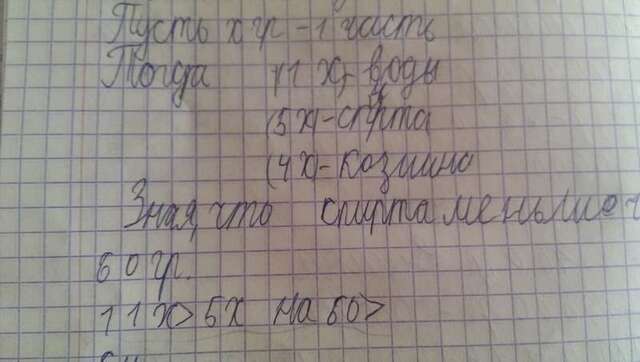 Пусть х гр - 1 часть
Тогда (11х) - воды
(5х) - спирта
(4х) - козиино
Зная, что спирта меньше
60 гр.
11х > 5х на 60 >